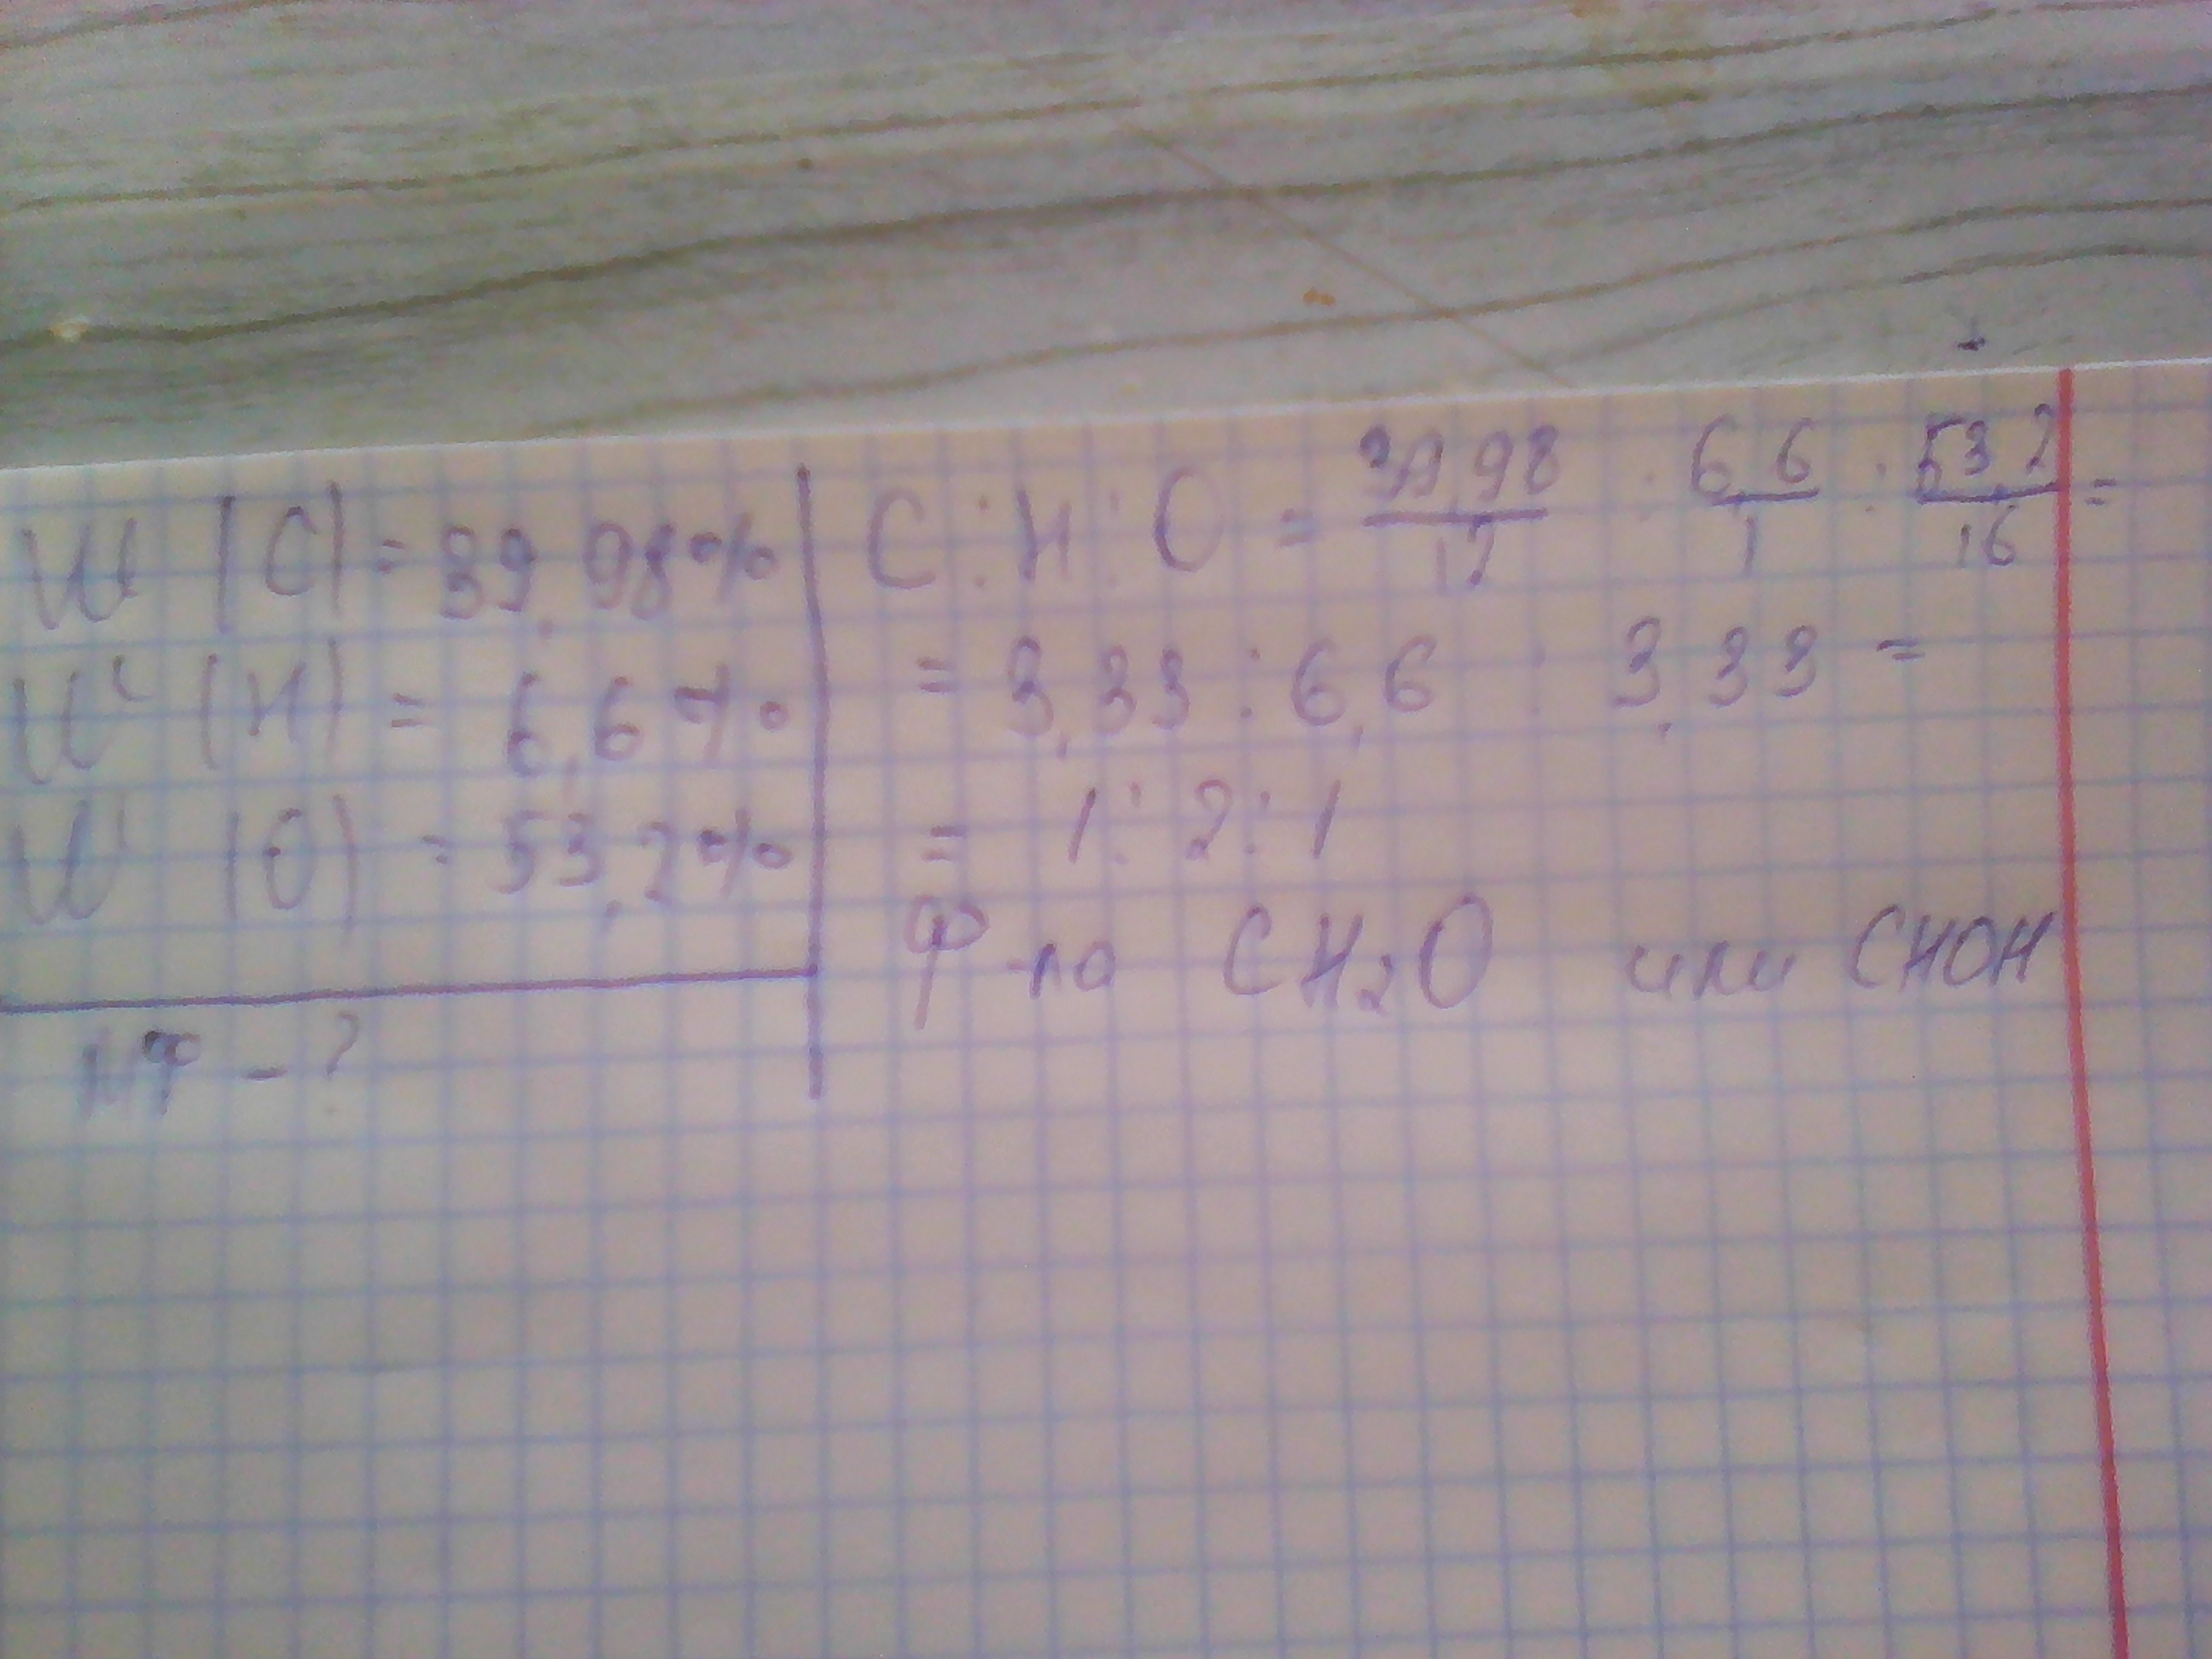 W (C) = 39,98%
W (H) = 6,6%
W (O) = 53,2%
МФ - ?
C : H : O = 39,98/12 : 6,6/1 : 53,2/16 =
= 3,33 : 6,6 : 3,33 =
= 1 : 2 : 1
Ф-ла CH₂O или CHOH